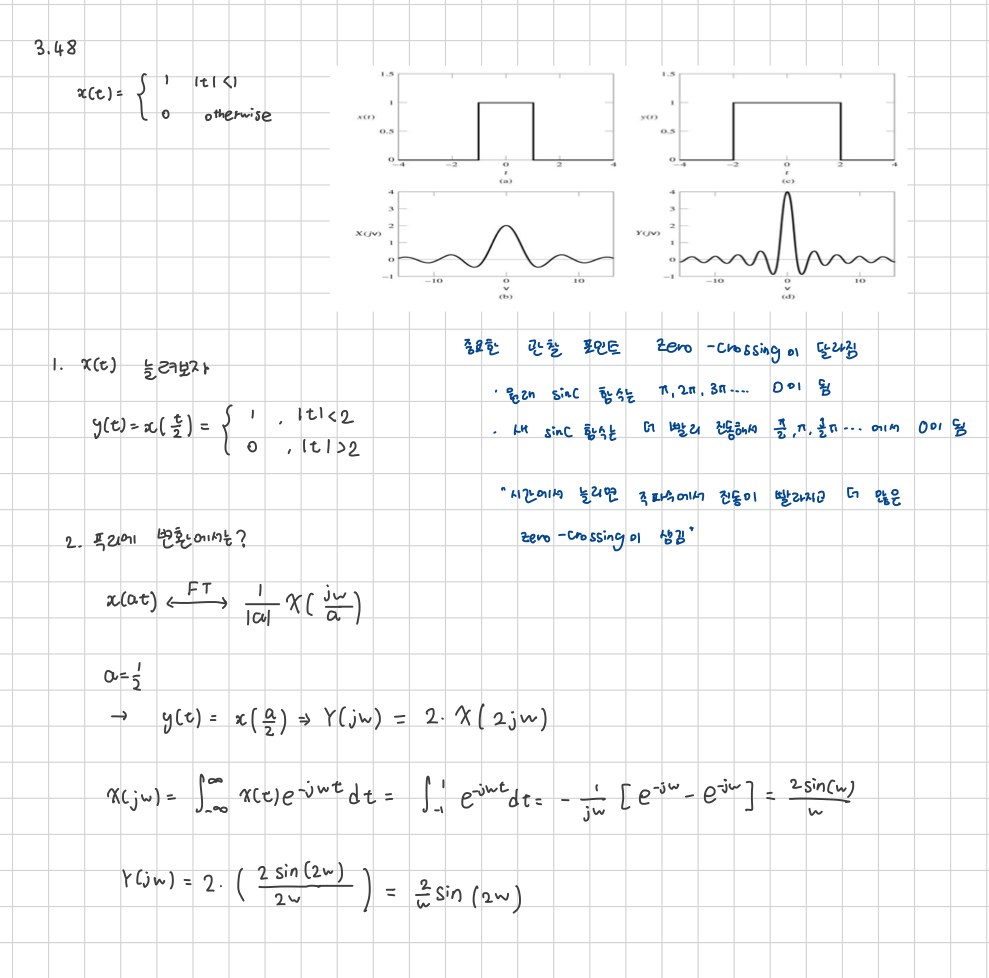 3.48
x(t) = { 1 |t|<1
0 otherwise
1.5
1
x(t)
0.5
0
-4 -2 0 2 4
t
(a)
1.5
1
y(t)
0.5
0
-4 -2 0 2 4
t
(c)
4
3
X(jv) 2
1
0
-1
-10 0 10
v
(b)
4
3
Y(jv) 2
1
0
-1
-10 0 10
v
(d)
1. x(t) 늘려보자
y(t) = x(t/2) = { 1 , |t|<2
0 , |t|>2
중요한 관찰 포인트 zero-crossing이 달라짐
· 원래 sinc 함수는 π, 2π, 3π.... 0이 됨
· 새 sinc 함수는 더 빨리 진동해서 π/2, π, 3/2π ... 에서 0이 됨
"시간에서 늘리면 주파수에서 진동이 빨라지고 더 많은
zero-crossing이 생김"
2. 푸리에 변환에서는?
x(at) ←FT→ 1/|a| X(jw/a)
a=1/2
→ y(t) = x(a/2) ⇒ Y(jw) = 2·X(2jw)
X(jw) = ∫_-∞^∞ x(t)e^-jwt dt = ∫_-1^1 e^-jwt dt = - 1/jw [e^-jw - e^-jw] = 2sin(w)/w
Y(jw) = 2·(2 sin(2w)/2w) = 2/w sin(2w)